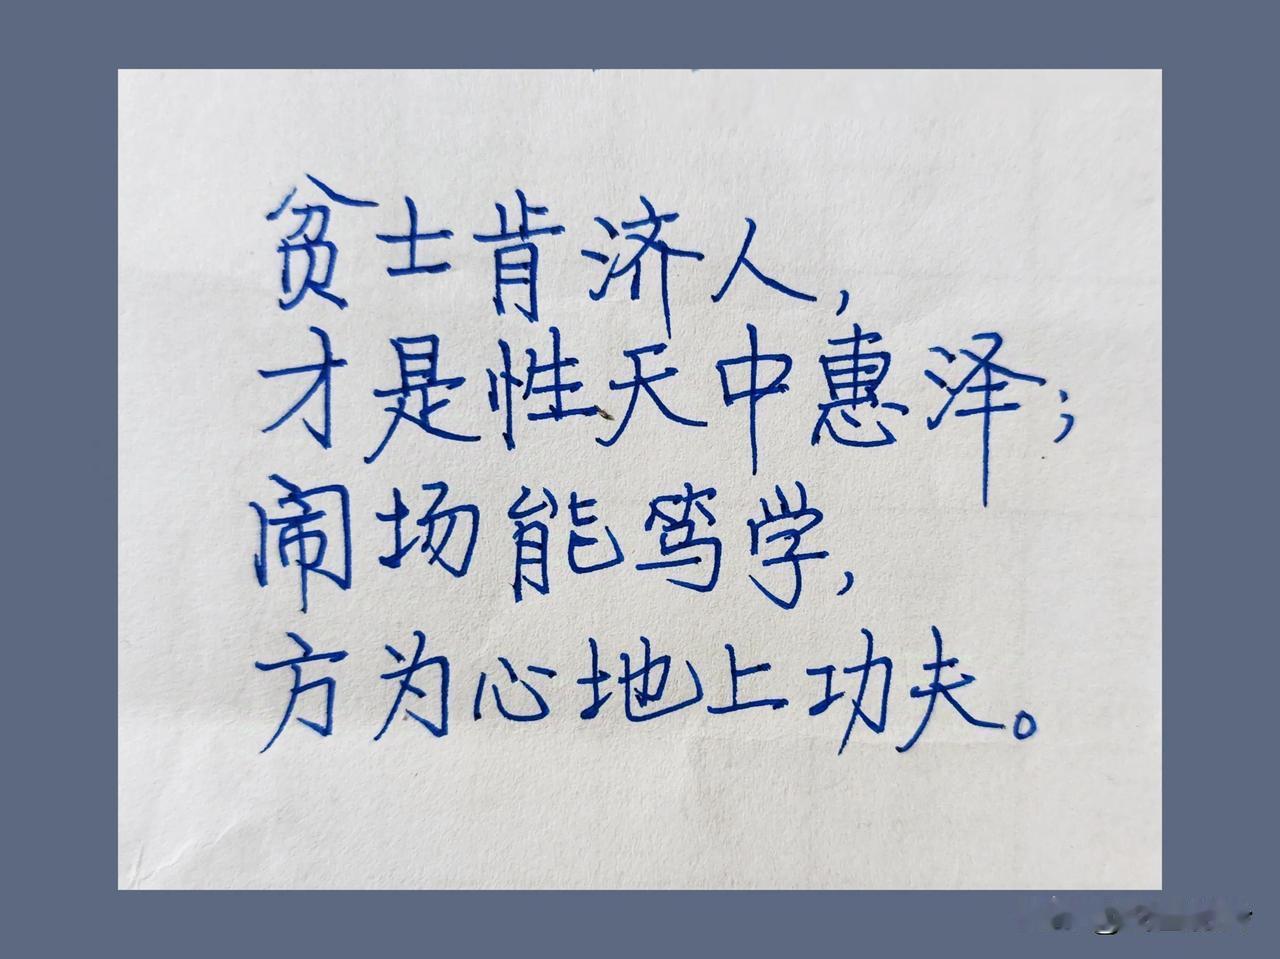 贫士肯济人，
才是性天中惠泽；
闹场能笃学，
方为心地上功夫。